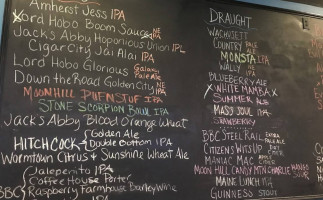 Amherst Jess IPA
Lord Hobo Boom Sauce NE IPA
Jack's Abby Hoponius Union IPL
Cigar City Jai Alai IPA
Lord Hobo Glorious Galaxy Pale Ale
Down the Road Golden City NE IPA
Moonhill Pufnstuf IPA
Stone Scorpion Bowl IPA
Jack's Abby Blood Orange Wheat
Hitchcock Golden Ale
Double Bottom IPA
Wormtown Citrus & Sunshine Wheat Ale
BBC Jalepeño IPA
Coffeehouse Porter
Raspberry Farmhouse Barleywine
Draught
Wachusett
Country Pale Ale
Monsta IPA
Wally IPA
Blueberry Ale
X White Mamba X
Summer Ale
Mass Soul
Strawberry
BBC Steel Rail Extra Pale Ale
Citizens Wits Up Dry Cider
Maniac Mac Apple Cider
Moon Hill Candy Mtn. Charlie
Maine Lunch IPA
Guinness Stout